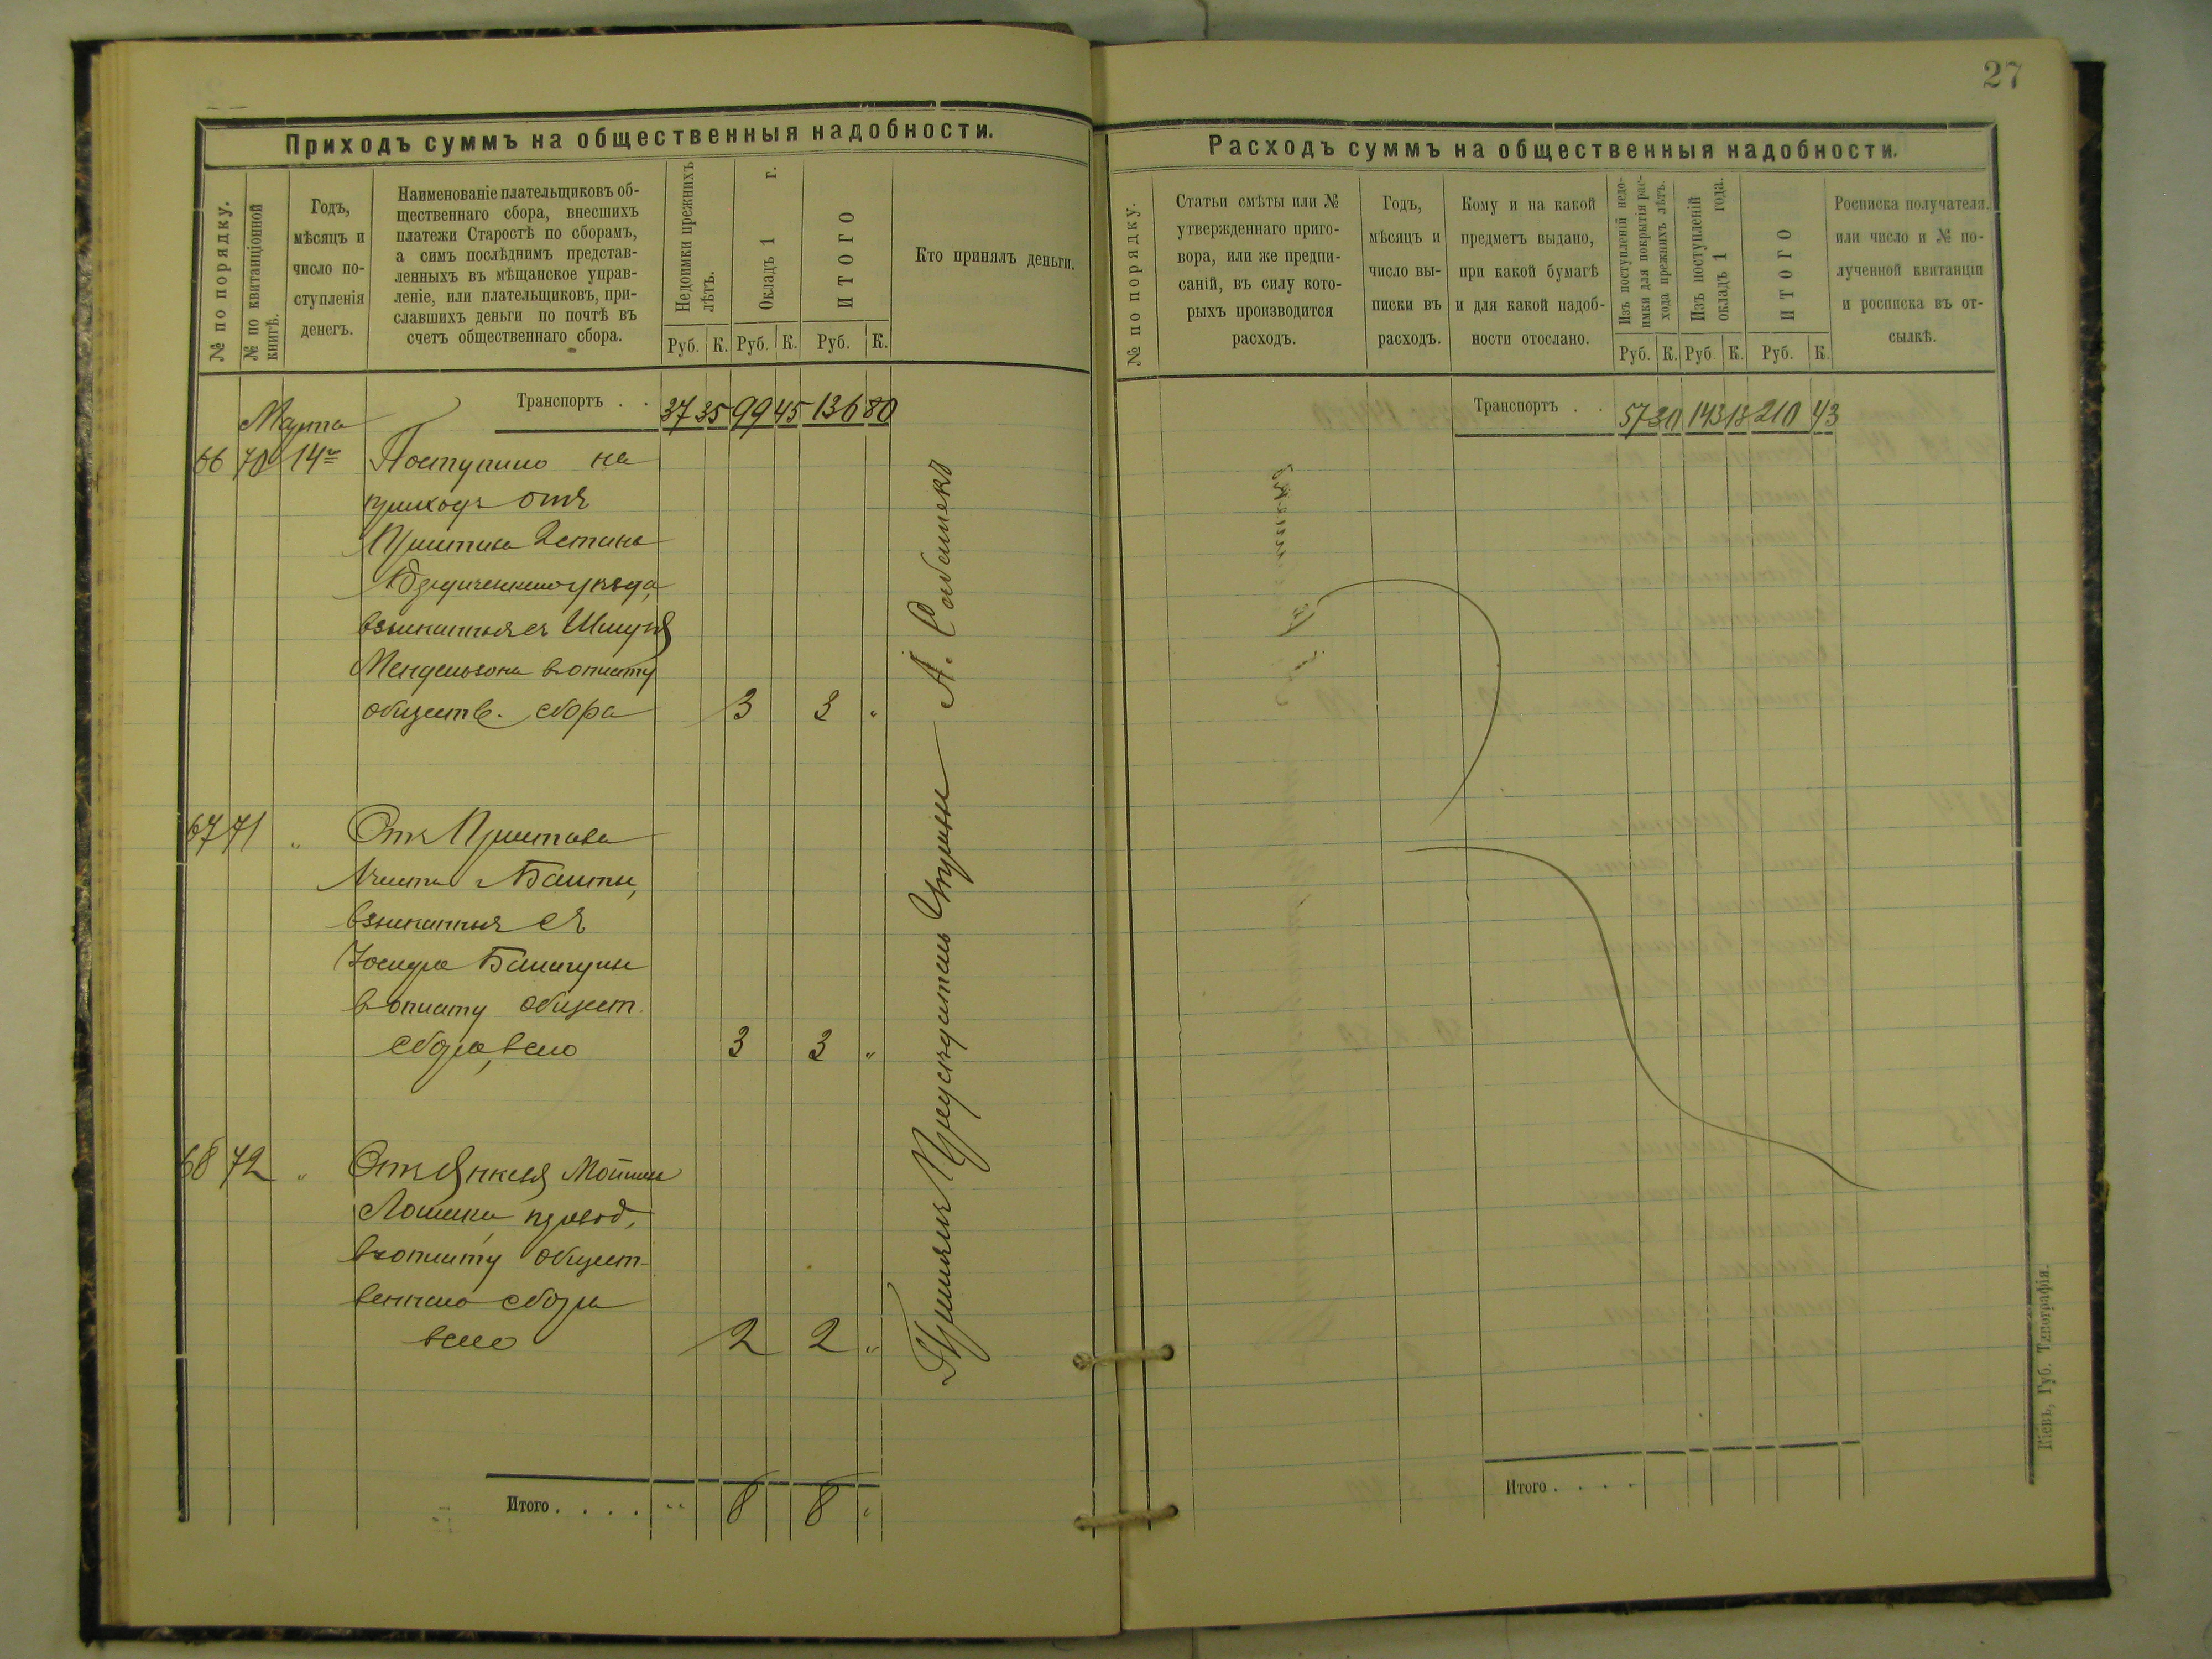 27
Приходъ суммъ на общественныя надобности.
№ по порядку.
№ по квитанціонной
книгѣ.
Годъ,
мѣсяцъ и
число по-
ступленія
денегъ.
Наименованіе плательщиковъ об-
щественнаго сбора, внесшихъ
платежи Старостѣ по сборамъ,
а симъ послѣднимъ представ-
ленныхъ въ мѣщанское управ-
леніе, или плательщиковъ, при-
славшихъ деньги по почтѣ въ
счетъ общественнаго сбора.
Недоимки прежнихъ
лѣтъ.
Окладъ 1 г.
ИТОГО
Руб. К. Руб. К. Руб. К.
Кто принялъ деньги.
Транспортъ . . 37 35 99 45 136 80
Марта
66 70 14 Поступило на
приходъ отъ
Пристава 2 стана
уѣзда,
взысканныя съ Шмуля
Мендельзона въ оплату
обществ. сбора 3 3 "
67 71 " Отъ Пристава
Бѣлты,
взысканныя съ
въ оплату общест.
сбора, всего 3 3 "
68 72 " Отъ Янкеля
въ оплату общест-
веннаго сбора
всего 2 2 "
Итого . . . . " 8 8 "
Принялъ Предсѣдатель
А.
Расходъ суммъ на общественныя надобности.
№ по порядку.
Статьи смѣты или №
утвержденнаго приго-
вора, или же предпи-
саній, въ силу кото-
рыхъ производится
расходъ.
Годъ,
мѣсяцъ и
число вы-
писки въ
расходъ.
Кому и на какой
предметъ выдано,
при какой бумагѣ
и для какой надоб-
ности отослано.
Изъ поступленій недо-
имки для покрытія рас-
хода прежнихъ лѣтъ.
Изъ поступленій
окладъ 1 года.
ИТОГО
Руб. К. Руб. К. Руб. К.
Росписка получателя.
или число и № по-
лученной квитанціи
и росписка въ от-
сылкѣ.
Транспортъ . . 57 30 143 13 210 43
Итого . . . .
Кіевъ, Губ. Типографія.